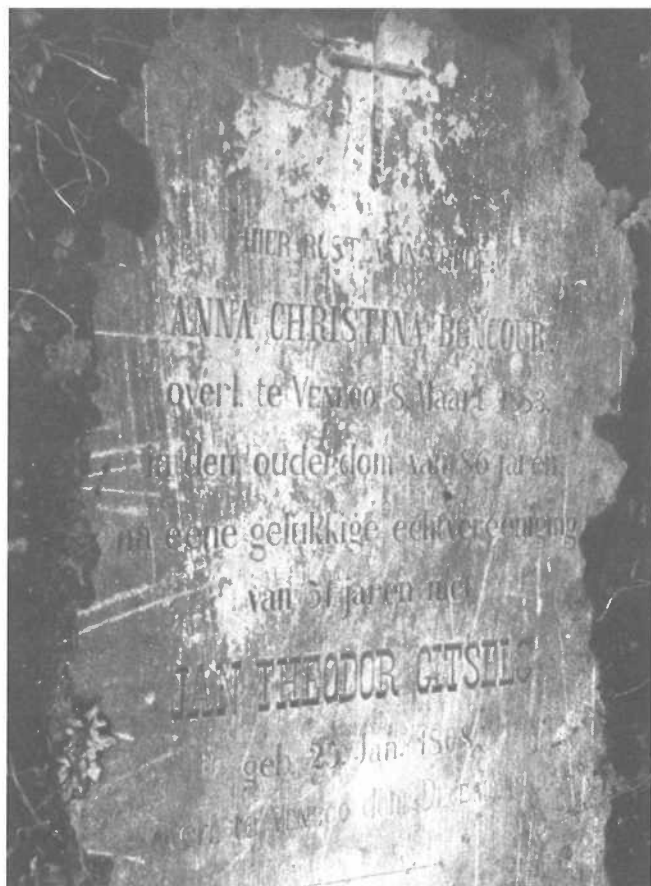 HIER RUST
ANNA CHRISTINA BONCOUR
overl. te VENLOO 8 Maart 1883.
in den ouderdom van 86 jaren,
na eene gelukkige echtvereeniging
van 51 jaren met
JAN THEODOR GITSELS
geb. 25 Jan. 1808.
overl. te VENLOO den